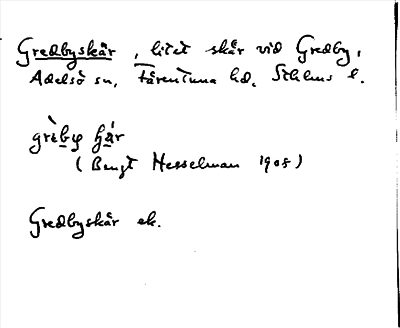 Gredbyskär, litet skär vid Gredby,
Adelsö sn, Färentuna hd, Sthlms l.
grèby
(Bengt Hesselman 1908)
Gredbyskär ek.